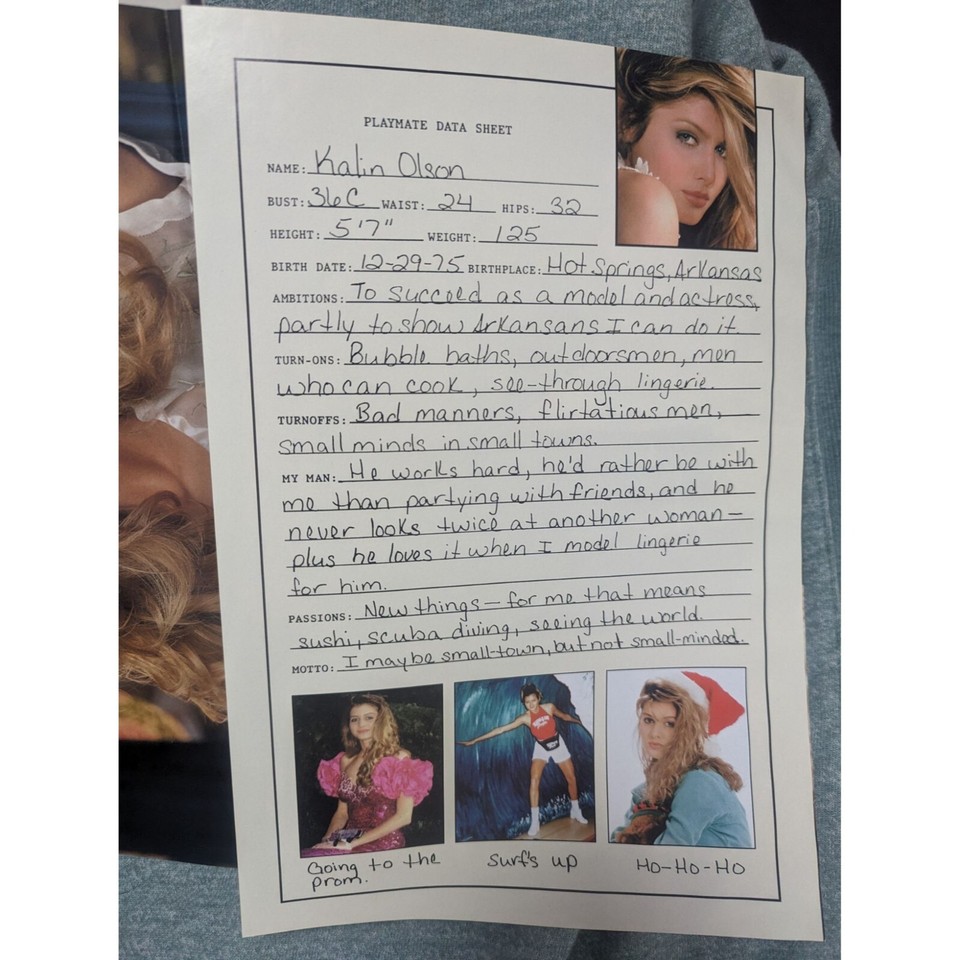 PLAYMATE DATA SHEET
NAME: Kalin Olson
BUST: 36C WAIST: 24 HIPS: 32
HEIGHT: 5'7" WEIGHT: 125
BIRTH DATE: 12-29-75 BIRTHPLACE: Hot Springs, Arkansas
AMBITIONS: To succeed as a model and actress,
partly to show Arkansans I can do it.
TURN-ONS: Bubble baths, outdoorsmen, men
who can cook, see-through lingerie.
TURNOFFS: Bad manners, flirtatious men,
small minds in small towns.
MY MAN: He works hard, he'd rather be with
me than partying with friends, and he
never looks twice at another woman—
plus he loves it when I model lingerie
for him.
PASSIONS: New things—for me that means
sushi, scuba diving, seeing the world.
MOTTO: I may be small-town, but not small-minded.
Going to the
prom.
Surf's up
HO-HO-HO